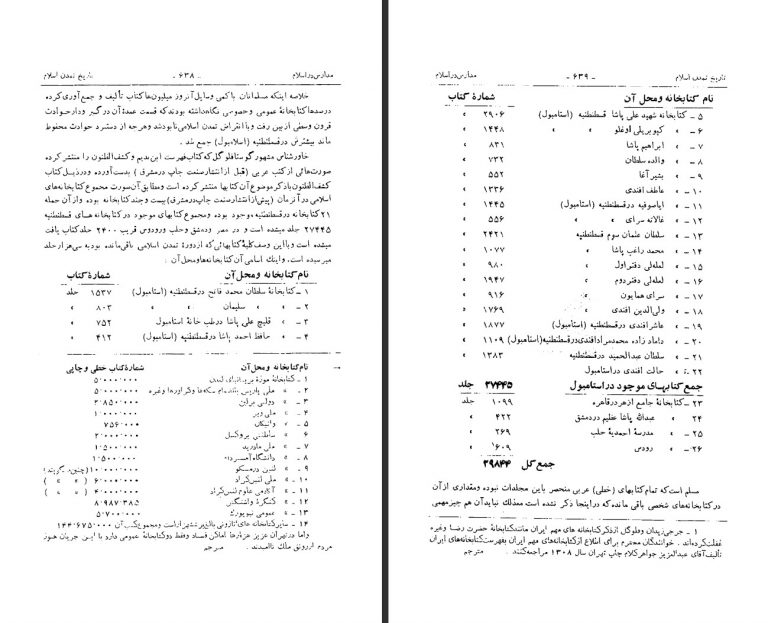 مدارس در اسلام
- ۶۳۸ -
تاریخ تمدن اسلام
خلاصه اینکه مسلمانان با کمی وسایل آنروز میلیون‌ها کتاب تألیف و جمع آوری کرده
در صدها کتابخانهٔ عمومی و خصوصی نگاه داشته بودند که قسمت عمدهٔ آن در گیر و دار حوادث
قرون وسطی از بین رفت و با انقراض تمدن اسلامی نابود شد و هر چه از دستبرد حوادث محفوظ
ماند بیشترش در قسطنطنیه (اسلامبول) جمع شد .
خاورشناس مشهور گوستاو فلوگل که کتاب فهرست ابن ندیم و کشف الظنون را منتشر کرده
صورت‌هائی از کتب عربی (قبل از انتشار صنعت چاپ در مشرق) بدست آورده و در ذیل کتاب
کشف الظنون با ذکر موضوع آن کتابها منتشر کرده است و مطابق آن صورت مجموع کتابخانه‌های
اسلامی در آن زمان (پیش از انتشار صنعت چاپ در مشرق) بیست و چند کتابخانه بوده و از آن جمله
۲۱ کتابخانه در قسطنطنیه موجود بوده و مجموع کتابهای موجود در کتابخانه های قسطنطنیه
۲۷۴۴۵ جلد میشده است و در مصر و دمشق و حلب و رودوس قریب ۲۴۰۰ جلد کتاب یافت
میشده است و با این وصف کلیهٔ کتابهائی که از دورهٔ تمدن اسلامی باقی مانده بود به سی هزار جلد
میرسیده است، و اینک اسامی آن کتابخانه‌ها و محل آن :
نام کتابخانه و محل آن شمارهٔ کتاب
۱ - کتابخانهٔ سلطان محمد فاتح در قسطنطنیه (استامبول) ۱۵۳۷ جلد
۲ - » » سلیمان » » ۸۰۳ »
۳ - » قلیچ علی پاشا در طب خانهٔ استامبول ۷۵۲ »
۴ - » حافظ احمد پاشا در قسطنطنیه (استامبول) ۴۱۲ »
نام کتابخانه و محل آن شمارهٔ کتاب خطی و چاپی
۱ - کتابخانهٔ موزهٔ بریتانیای لندن ۵٬۰۰۰٬۰۰۰
۲ - » ملی پاریس باستثنای سکه‌ها و گراورها و غیره ۵٬۰۰۰٬۰۰۰
۳ - » دولتی برلین ۲٬۸۵۰٬۰۰۰
۴ - » ملی ۱٬۰۰۰٬۰۰۰
۵ - » واتیکان ۷۵۶٬۰۰۰
۶ » سلطنتی بروکسل ۲٬۰۰۰٬۰۰۰
۷ - » ملی مادرید ۱٬۵۰۰٬۰۰۰
۸ - » دانشگاه ۱٬۵۰۰٬۰۰۰
۹ - » لنین در مسکو ۱۰٬۰۰۰٬۰۰۰ (چنین میگویند)
۱۰ - » ملی لنین گراد ۶٬۰۰۰٬۰۰۰ ( » » )
۱۱ - » آکادمی علوم لنین گراد ۴٬۰۰۰٬۰۰۰ ( » » )
۱۲ - » کنگرهٔ واشنگتن ۸٬۹۸۷٬۳۸۵
۱۳ - » عمومی نیویورک ۵٬۷۰۰٬۰۰۰
۱۴ - سایر کتابخانه های ۱۴۴٬۶۷۵٬۰۰۰
و اما در تهران عزیز
مردم مترجم
تاریخ تمدن اسلام
- ۶۳۹ -
مدارس در اسلام
نام کتابخانه و محل آن شمارهٔ کتاب
۵ - کتابخانه شهید علی پاشا قسطنطنیه (استامبول) ۲۹۰۶ »
۶ - » کوپریلی اوغلو » » ۱۴۴۸ »
۷ - » ابراهیم پاشا ۸۳۱ »
۸ - » والده سلطان ۷۳۲ »
۹ - » بشیر آغا ۵۵۲ »
۱۰ - » عاطف افندی ۱۳۳۶ »
۱۱ - » ایاصوفیه در قسطنطنیه (استامبول) ۱۴۴۵ »
۱۲ - » غالاته سرای » » ۵۵۶ »
۱۳ - » سلطان عثمان سوم قسطنطنیه ۲۴۲۱ »
۱۴ - » محمد راغب پاشا » ۱۰۷۷ »
۱۵ - » لعله‌لی دفتر اول » ۹۸۰ »
۱۶ - » لعله‌لی دفتر دوم » ۱۹۴۷ »
۱۷ - » سرای همایون » ۹۱۶ »
۱۸ - » ولی‌الدین افندی » ۱۷۶۹ »
۱۹ - » عاشر افندی در قسطنطنیه (استامبول) ۱۸۷۷ »
۲۰ - » داماد زاده محمد مراد افندی در قسطنطنیه (استامبول) ۱۱۰۹ »
۲۱ - » سلطان عبدالحمید در قسطنطنیه ۱۳۸۳ »
۲۲ - » حالت افندی در استامبول
جمع کتابهای موجود در استامبول ۲۷۴۴۵ جلد
۲۳ - کتابخانهٔ جامع ازهر در قاهره ۱۰۹۹ جلد
۲۴ » عبدالله پاشا عظیم در دمشق ۴۲۲ »
۲۵ - » مدرسهٔ احمدیهٔ حلب ۲۶۹ »
۲۶ - » رودس ۶۰۹ »
جمع کل ۲۹۸۴۴
مسلم است که تمام کتابهای (خطی) عربی منحصر باین مجلدات نبوده و مقداری از آن
در کتابخانه‌های شخصی باقی مانده که در اینجا ذکر نشده است معذلك نباید آن هم چیز مهمی
۱ - جرجی زیدان و فلوگل از ذکر کتابخانه های مهم ایران مانند کتابخانهٔ حضرت رضا و غیره
غفلت کرده‌اند . خوانندگان محترم برای اطلاع از کتابخانه‌های مهم ایران بفهرست کتابخانه‌های ایران
تألیف آقای عبدالعزیز جواهرکلام چاپ تهران سال ۱۳۰۸ مراجعه کنند . مترجم